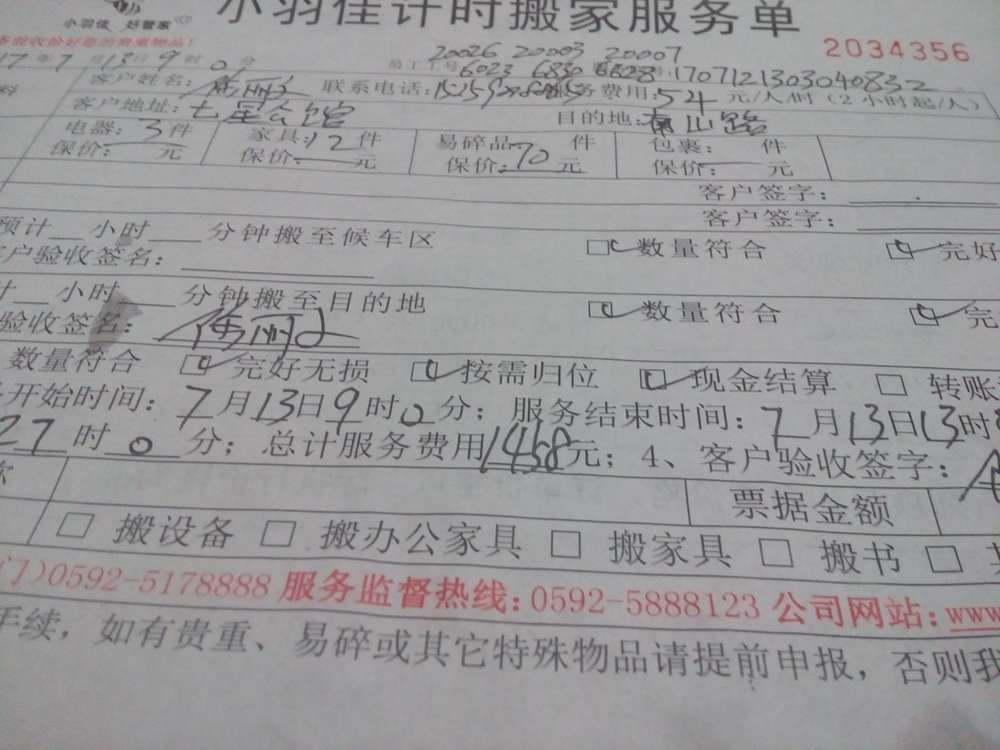 小羽佳计时搬家服务单
小羽佳 好管家
2034356
20026 20003 20007
17年7月13日9时0分 员工工号:6023 6830 :1707121303040832
客户姓名: 联系电话: 服务费用:54元/人/时(2小时起/人)
客户地址:七星公馆 目的地:山路
电器:3件 家具:12件 易碎品: 件 包裹: 件
保价: 元 保价: 元 保价:70元 保价: 元
客户签字:
客户签字:
预计 小时 分钟搬至候车区 数量符合 完好
客户验收签名:
计 小时 分钟搬至目的地 数量符合 完
验收签名:
数量符合 完好无损 按需归位 现金结算 转账
开始时间:7月13日9时0分;服务结束时间:7月13日13时
27时0分;总计服务费用1458元;4、客户验收签字:
票据金额
搬设备 搬办公家具 搬家具 搬书
门)0592-5178888 服务监督热线:0592-5888123 公司网站:www
手续,如有贵重、易碎或其它特殊物品请提前申报,否则我